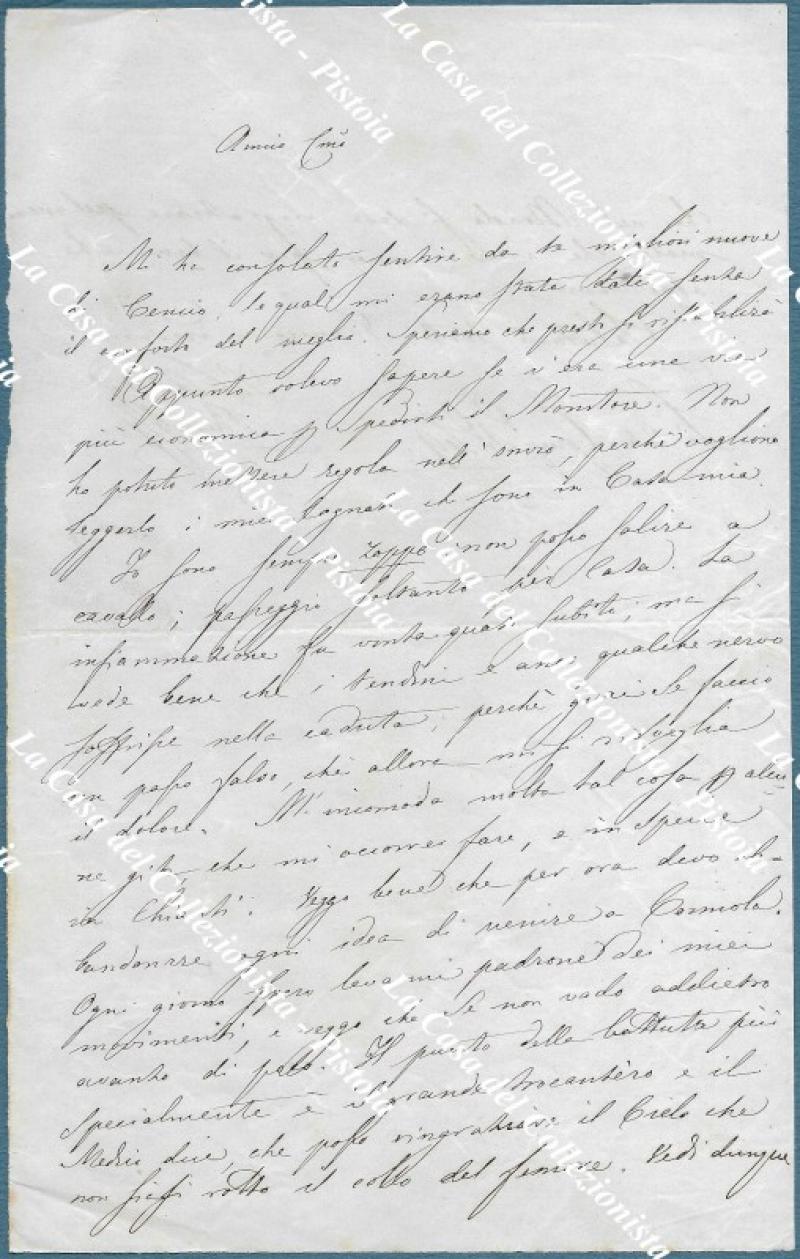 Amico Cmo
Mi ha consolato sentire da te migliori nuove
di Cencio, le quali mi erano state date senza
il conforto del meglio. Speriamo che presto si ristabilirà
Appunto volevo sapere se v'era una via
più economica p spedirti il Monitore. Non
ho potuto mettere regola nell'invio, perchè vogliono
leggerlo i miei che sono in Casa mia.
Io sono sempre zoppo: non posso salire a
cavallo; passeggio soltanto per Casa. La
infiammazione fu vinta quasi subito; ma si
vede bene che i tendini e anco qualche nervo
soffrisse nella caduta, perchè guai se faccio
un passo falso, chè allora mi si risveglia
il dolore. M'incomoda molto tal cosa p alcu=
ne gite, che mi occorre fare, e in specie
in Chianti. Veggo bene che per ora devo ab=
bandonare ogni idea di venire a
Ogni giorno spero levarmi padrone dei miei
movimenti, e veggo che se non vado addietro
avanzo di poco. Il punto della battuta più
specialmente è il grande trocantère e il
Medico dice, che posso ringraziare il Cielo che
non siasi rotto il collo del femore. Vedi dunque
La Casa del Collezionista - Pistoia
La Casa del Collezionista - Pistoia
La Casa del Collezionista - Pistoia
La Casa del Collezionista - Pistoia